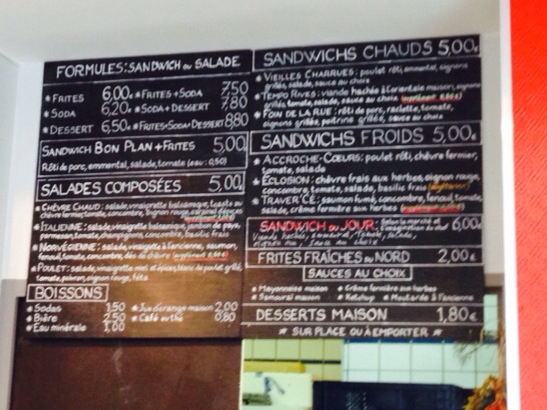 FORMULES: SANDWICH ou SALADE
* FRITES 6,00€ * FRITES + SODA 7,50
* SODA 6,20€ * SODA + DESSERT 7,80
* DESSERT 6,50€ * FRITES + SODA + DESSERT 8,80
SANDWICH BON PLAN + FRITES 5,00
Rôti de porc, emmental, salade, tomate (eau: 0,50)
SALADES COMPOSÉES 5,00
* CHÈVRE CHAUD: salade, vinaigrette balsamique, toasts au
chèvre fermier, tomate, concombre, oignon rouge, caramel d'épices
* ITALIENNE: salade, vinaigrette balsamique, jambon de pays,
parmesan, tomate, champignons, concombre, basilic frais
* NORVÉGIENNE: salade, vinaigrette à l'ancienne, saumon,
fenouil, tomate, concombre, dés de chèvre
* POULET: salade, vinaigrette miel et épices, blanc de poulet grillé,
tomate, poivron, oignon rouge, féta
BOISSONS
* Sodas 1,50 * Jus d'orange maison 2,00
* Bière 2,50 * Café ou thé 0,80
* Eau minérale 1,00
SANDWICHS CHAUDS 5,00€
* VIEILLES CHARRUES: poulet rôti, emmental, oignons
grillés, salade, sauce au choix
* TEMPO RIVES: viande hachée à l'orientale maison, oignons
grillés, tomate, salade, sauce au choix
* FOIN DE LA RUE: rôti de porc, raclette, tomate,
oignons grillés, poitrine grillée, sauce au choix
SANDWICHS FROIDS 5,00€
* ACCROCHE-COEURS: poulet rôti, chèvre fermier,
tomate, salade
* ÉCLOSION: chèvre frais aux herbes, oignon rouge,
concombre, tomate, salade, basilic frais
* TRAVER'CÉ: saumon fumé, concombre, fenouil, tomate,
salade, crème fermière aux herbes
SANDWICH DU JOUR: Selon le marché et
l'imagination du chef 6,00€
salade,
sauce au choix
FRITES FRAÎCHES DU NORD 2,00€
SAUCES AU CHOIX
* Mayonnaise maison * Crème fermière aux herbes
* Samouraï maison * Ketchup * Moutarde à l'ancienne
DESSERTS MAISON 1,80€
* SUR PLACE OU À EMPORTER *